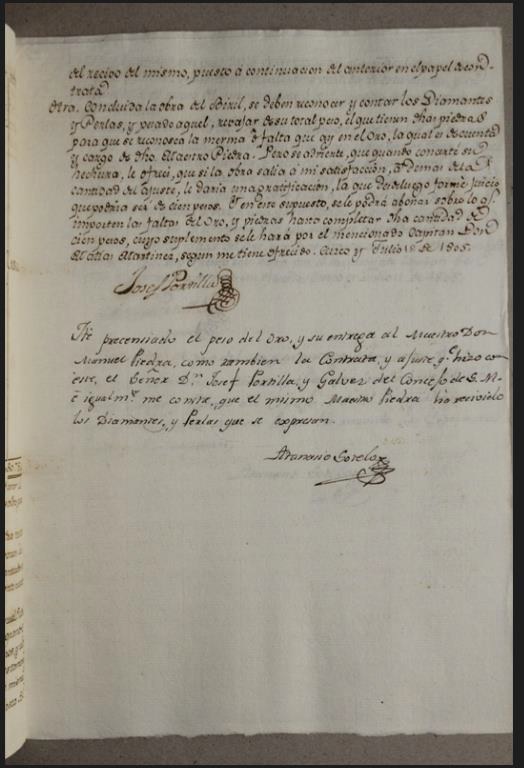 del recivo del mismo, puesto á continuacion del anterior en el papel de con-
trata
Otra. Concluida la obra del Biril, se deben reconocer y contar los Diamantes
y Perlas, y pesado aquel, revajar de su total peso, el que tienen dhas piedras
para que se reconosca la merma ó falta que ay en el Oro, la qual es de cuenta
y cargo de dho. Maestro Piedra. Pero se advierte, que quando concerté su
hechura, le ofreci, que si la obra salia á mi satisfacción, ademas de la
cantidad del ajuste, le daria una gratificación, la que desde luego formé juicio
que podria ser de cien pesos. Y en este supuesto, se le podrá abonar sobre lo q.
importen las faltas del Oro, y piedras hasta completar dha cantidad de
cien pesos, cuyo suplemento se le hará por el mencionado Capitan Don
Matias Martinez, segun me tiene ofrecido. Cuzco y Julio de 1805.
Josef Portilla
He precenciado el peso del Oro, y su entrega al Maestro Don
Manuel Piedra, como tambien la Contrata, y ajuste q.e hizo con
este, el Señor D.n Josef Portilla, y Galvez del Concejo de S. M.
é igualm.te me consta, que el mismo Maestro Piedra ha recivido
los Diamantes, y Perlas que se expresan.
Atanacio